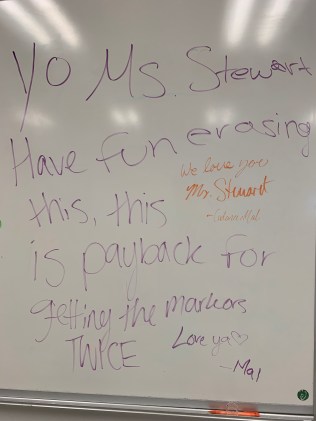 YO Ms. Stewart
Have fun erasing
We love you
Mr. Stewart
this, this
is payback for
getting the markors
TWICE
Love ya♡
-Mal